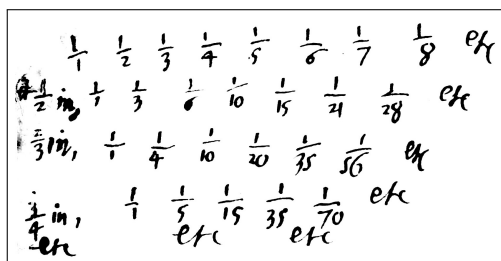 1/1 1/2 1/3 1/4 1/5 1/6 1/7 1/8 etc
1/2 in, 1/1 1/3 1/6 1/10 1/15 1/21 1/28 etc
2/3 in, 1/1 1/4 1/10 1/20 1/35 1/56 etc
3/4 in, 1/1 1/5 1/15 1/35 1/70 etc
etc etc etc